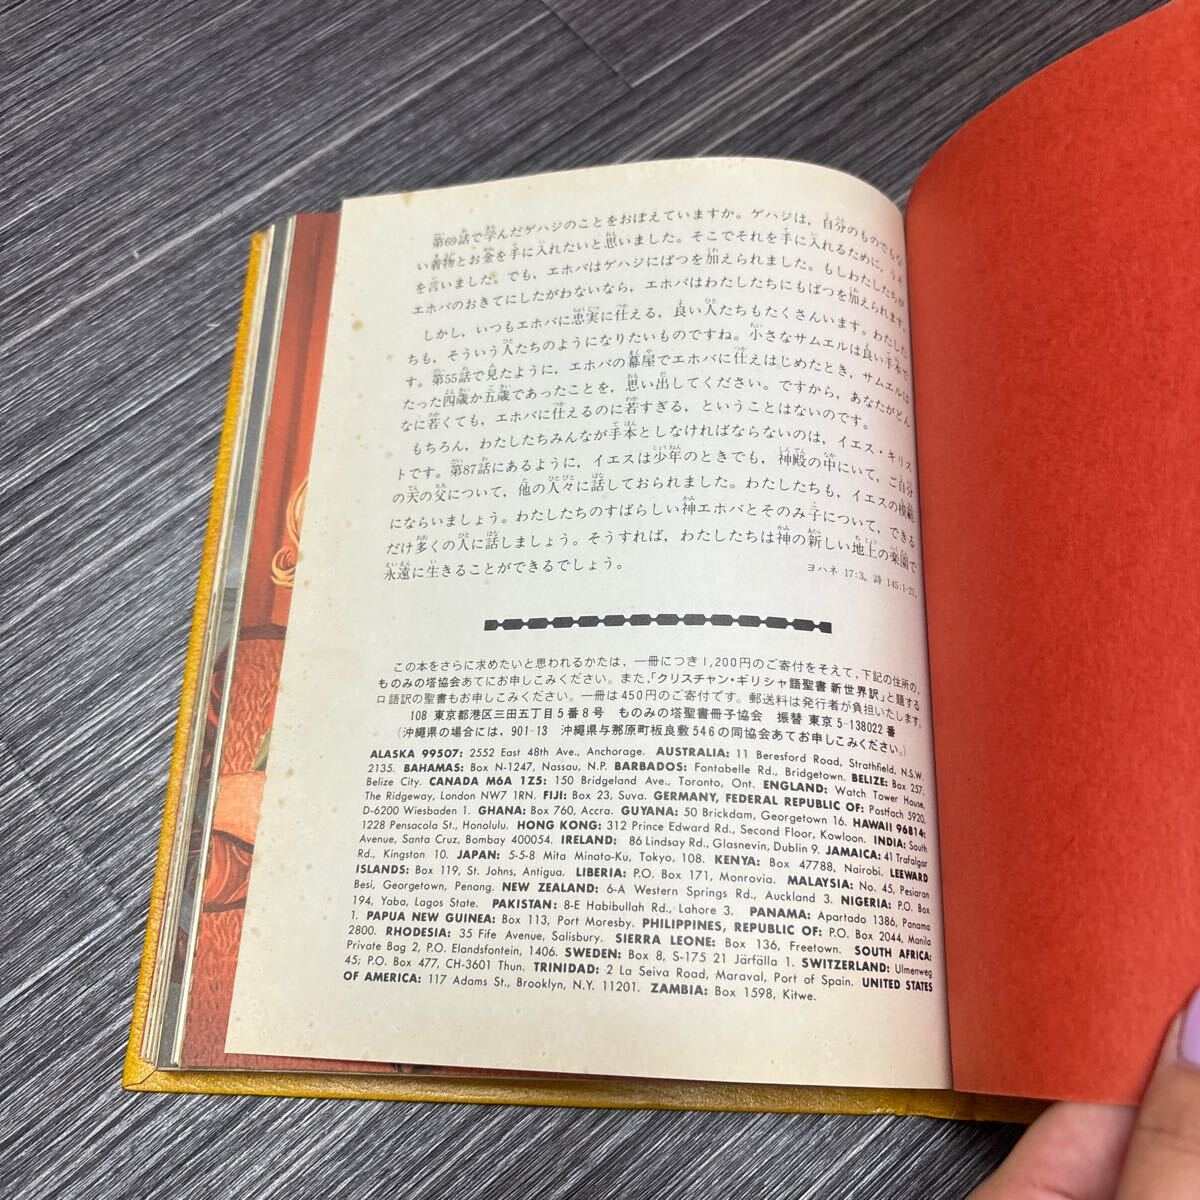 第69話で学んだゲハジのことをおぼえていますか。ゲハジは，自分のものでもな
い着物とお金を手に入れたいと思いました。そこでそれを手に入れるために，うそ
を言いました。でも，エホバはゲハジにばつを加えられました。もしわたしたちが
エホバのおきてにしたがわないなら，エホバはわたしたちにもばつを加えられます。
しかし，いつもエホバに忠実に仕える，良い人たちもたくさんいます。わたした
ちも，そういう人たちのようになりたいものですね。小さなサムエルは良い手本で
す。第55話で見たように，エホバの幕屋でエホバに仕えはじめたとき，サムエルは
たった四歳か五歳であったことを，思い出してください。ですから，あなたがどん
なに若くても，エホバに仕えるのに若すぎる，ということはないのです。
もちろん，わたしたちみんなが手本としなければならないのは，イエス・キリス
トです。第87話にあるように，イエスは少年のときでも，神殿の中にいて，ご自分
の天の父について，他の人々に話しておられました。わたしたちも，イエスの模範
にならいましょう。わたしたちのすばらしい神エホバとそのみ子について，できる
だけ多くの人に話しましょう。そうすれば，わたしたちは神の新しい地上の楽園で
永遠に生きることができるでしょう。
ヨハネ 17:3。詩 145:1-21。
この本をさらに求めたいと思われるかたは，一冊につき1,200円のご寄付をそえて，下記の住所の，
ものみの塔協会あてにお申しこみください。また，「クリスチャン・ギリシャ語聖書 新世界訳」と題する
口語訳の聖書もお申しこみください。一冊は450円のご寄付です。郵送料は発行者が負担いたします。
108 東京都港区三田五丁目5番8号 ものみの塔聖書冊子協会 振替 東京 5-138022 番
（沖縄県の場合には，901-13 沖縄県与那原町板良敷546の同協会あてお申しこみください。）
ALASKA 99507: 2552 East 48th Ave., Anchorage. AUSTRALIA: 11 Beresford Road, Strathfield, N.S.W.
2135. BAHAMAS: Box N-1247, Nassau, N.P. BARBADOS: Fontabelle Rd., Bridgetown. BELIZE: Box 257,
Belize City. CANADA M6A 1Z5: 150 Bridgeland Ave., Toronto, Ont. ENGLAND: Watch Tower House,
The Ridgeway, London NW7 1RN. FIJI: Box 23, Suva. GERMANY, FEDERAL REPUBLIC OF: Postfach 5920,
D-6200 Wiesbaden 1. GHANA: Box 760, Accra. GUYANA: 50 Brickdam, Georgetown 16. HAWAII 96814:
1228 Pensacola St., Honolulu. HONG KONG: 312 Prince Edward Rd., Second Floor, Kowloon. INDIA: South
Avenue, Santa Cruz, Bombay 400054. IRELAND: 86 Lindsay Rd., Glasnevin, Dublin 9. JAMAICA: 41 Trafalgar
Rd., Kingston 10. JAPAN: 5-5-8 Mita Minato-Ku, Tokyo, 108. KENYA: Box 47788, Nairobi. LEEWARD
ISLANDS: Box 119, St. Johns, Antigua. LIBERIA: P.O. Box 171, Monrovia. MALAYSIA: No. 45, Pesiaran
Besi, Georgetown, Penang. NEW ZEALAND: 6-A Western Springs Rd., Auckland 3. NIGERIA: P.O. Box
194, Yaba, Lagos State. PAKISTAN: 8-E Habibullah Rd., Lahore 3. PANAMA: Apartado 1386, Panama
1. PAPUA NEW GUINEA: Box 113, Port Moresby. PHILIPPINES, REPUBLIC OF: P.O. Box 2044, Manila
2800. RHODESIA: 35 Fife Avenue, Salisbury. SIERRA LEONE: Box 136, Freetown. SOUTH AFRICA:
Private Bag 2, P.O. Elandsfontein, 1406. SWEDEN: Box 8, S-175 21 Järfälla 1. SWITZERLAND: Ulmenweg
45; P.O. Box 477, CH-3601 Thun. TRINIDAD: 2 La Seiva Road, Maraval, Port of Spain. UNITED STATES
OF AMERICA: 117 Adams St., Brooklyn, N.Y. 11201. ZAMBIA: Box 1598, Kitwe.